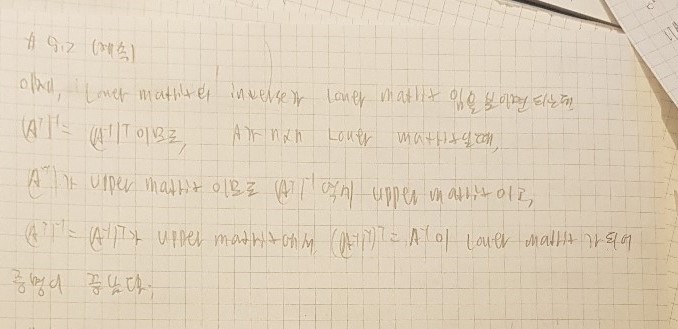 # 5.2 (계속)
이제, Lower matrix의 inverse가 lower matrix 임을 보이면 되는데
(Aᵀ)⁻¹ = (A⁻¹)ᵀ 이므로, A가 n×n Lower matrix일때,
Aᵀ가 upper matrix 이므로 (Aᵀ)⁻¹ 역시 upper matrix 이고,
(Aᵀ)⁻¹ = (A⁻¹)ᵀ가 upper matrix ((A⁻¹)ᵀ)ᵀ = A⁻¹ 이 Lower matrix 가 되어
증명이 끝난다.